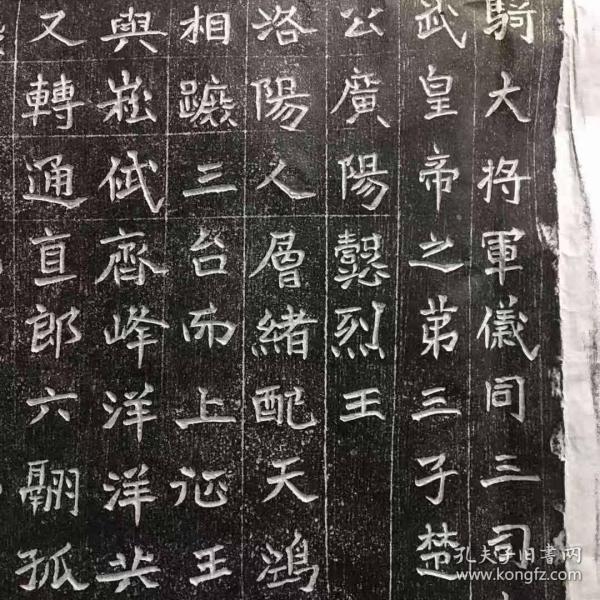 騎大將軍儀同三司
武皇帝之苐三子楚
公廣陽懿烈王
洛陽人層緒配天鴻
相蹠三台而上征王
與崧岱齊峰洋洋共
又轉通直郎六翮孤
孔夫子旧书网
www.kongfz.com